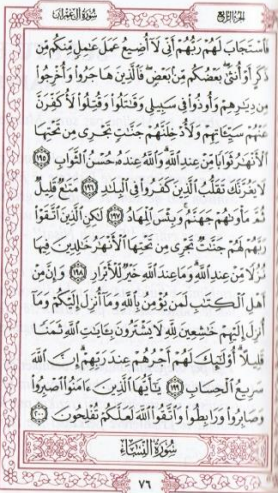 سُورَةُ آلِ عِمْرَان الجُزْءُ الرَّابِعُ
فَاسْتَجَابَ لَهُمْ رَبُّهُمْ أَنِّي لَا أُضِيعُ عَمَلَ عَامِلٍ مِّنكُم مِّن
ذَكَرٍ أَوْ أُنثَىٰ بَعْضُكُم مِّن بَعْضٍ فَالَّذِينَ هَاجَرُوا وَأُخْرِجُوا
مِن دِيَارِهِمْ وَأُوذُوا فِي سَبِيلِي وَقَاتَلُوا وَقُتِلُوا لَأُكَفِّرَنَّ
عَنْهُمْ سَيِّئَاتِهِمْ وَلَأُدْخِلَنَّهُمْ جَنَّاتٍ تَجْرِي مِن تَحْتِهَا
الْأَنْهَارُ ثَوَابًا مِّنْ عِندِ اللَّهِ وَاللَّهُ عِندَهُ حُسْنُ الثَّوَابِ ١٩٥
لَا يَغُرَّنَّكَ تَقَلُّبُ الَّذِينَ كَفَرُوا فِي الْبِلَادِ ١٩٦ مَتَاعٌ قَلِيلٌ
ثُمَّ مَأْوَاهُمْ جَهَنَّمُ وَبِئْسَ الْمِهَادُ ١٩٧ لَٰكِنِ الَّذِينَ اتَّقَوْا
رَبَّهُمْ لَهُمْ جَنَّاتٌ تَجْرِي مِن تَحْتِهَا الْأَنْهَارُ خَالِدِينَ فِيهَا
نُزُلًا مِّنْ عِندِ اللَّهِ وَمَا عِندَ اللَّهِ خَيْرٌ لِّلْأَبْرَارِ ١٩٨ وَإِنَّ مِنْ
أَهْلِ الْكِتَابِ لَمَن يُؤْمِنُ بِاللَّهِ وَمَا أُنزِلَ إِلَيْكُمْ وَمَا
أُنزِلَ إِلَيْهِمْ خَاشِعِينَ لِلَّهِ لَا يَشْتَرُونَ بِآيَاتِ اللَّهِ ثَمَنًا
قَلِيلًا أُولَٰئِكَ لَهُمْ أَجْرُهُمْ عِندَ رَبِّهِمْ إِنَّ اللَّهَ
سَرِيعُ الْحِسَابِ ١٩٩ يَا أَيُّهَا الَّذِينَ آمَنُوا اصْبِرُوا
وَصَابِرُوا وَرَابِطُوا وَاتَّقُوا اللَّهَ لَعَلَّكُمْ تُفْلِحُونَ ٢٠٠
سُورَةُ النِّسَاءِ
٧٦